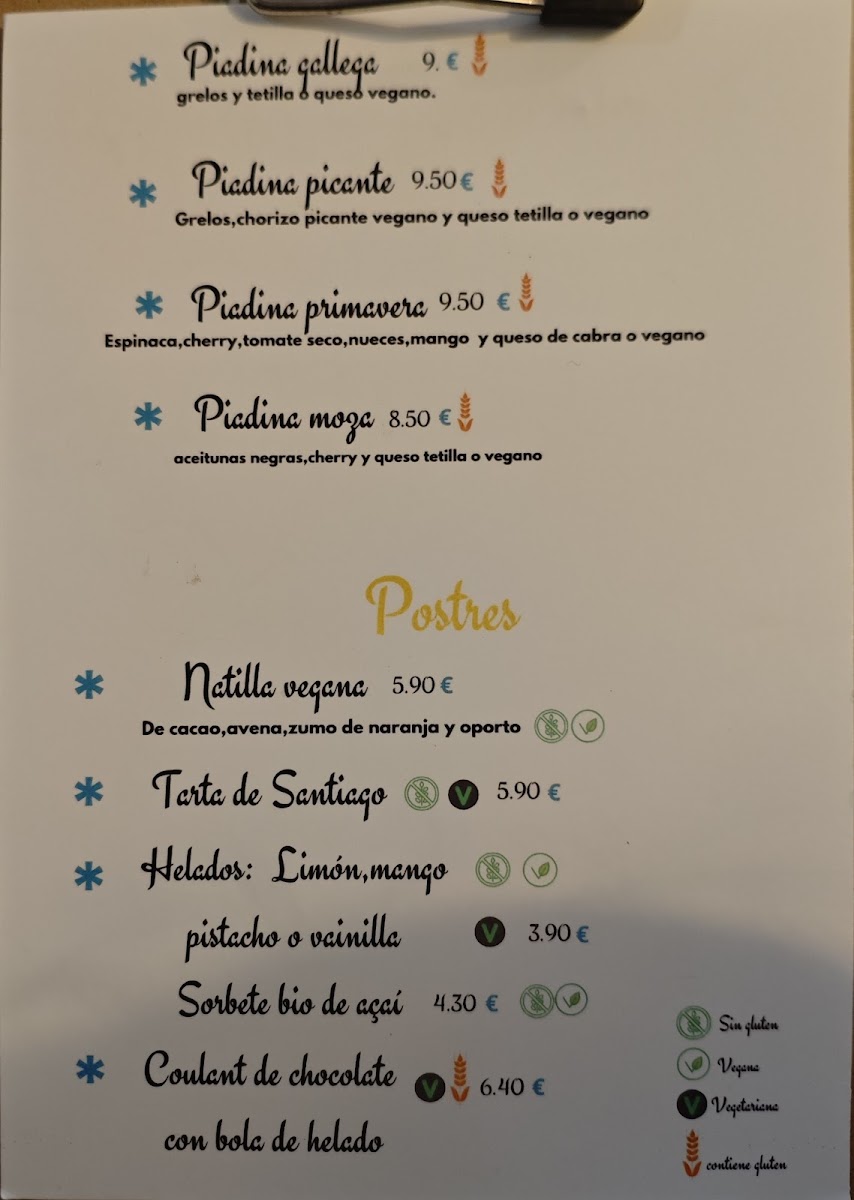 * Piadina gallega 9. €
grelos y tetilla o queso vegano.
* Piadina picante 9.50 €
Grelos,chorizo picante vegano y queso tetilla o vegano
* Piadina primavera 9.50 €
Espinaca,cherry,tomate seco,nueces,mango y queso de cabra o vegano
* Piadina moza 8.50 €
aceitunas negras,cherry y queso tetilla o vegano
Postres
* Natilla vegana 5.90 €
De cacao,avena,zumo de naranja y oporto
* Tarta de Santiago V 5.90 €
* Helados: Limón,mango
pistacho o vainilla V 3.90 €
Sorbete bio de açaí 4.30 €
* Coulant de chocolate V 6.40 €
con bola de helado
Sin gluten
Vegana
V Vegetariana
contiene gluten